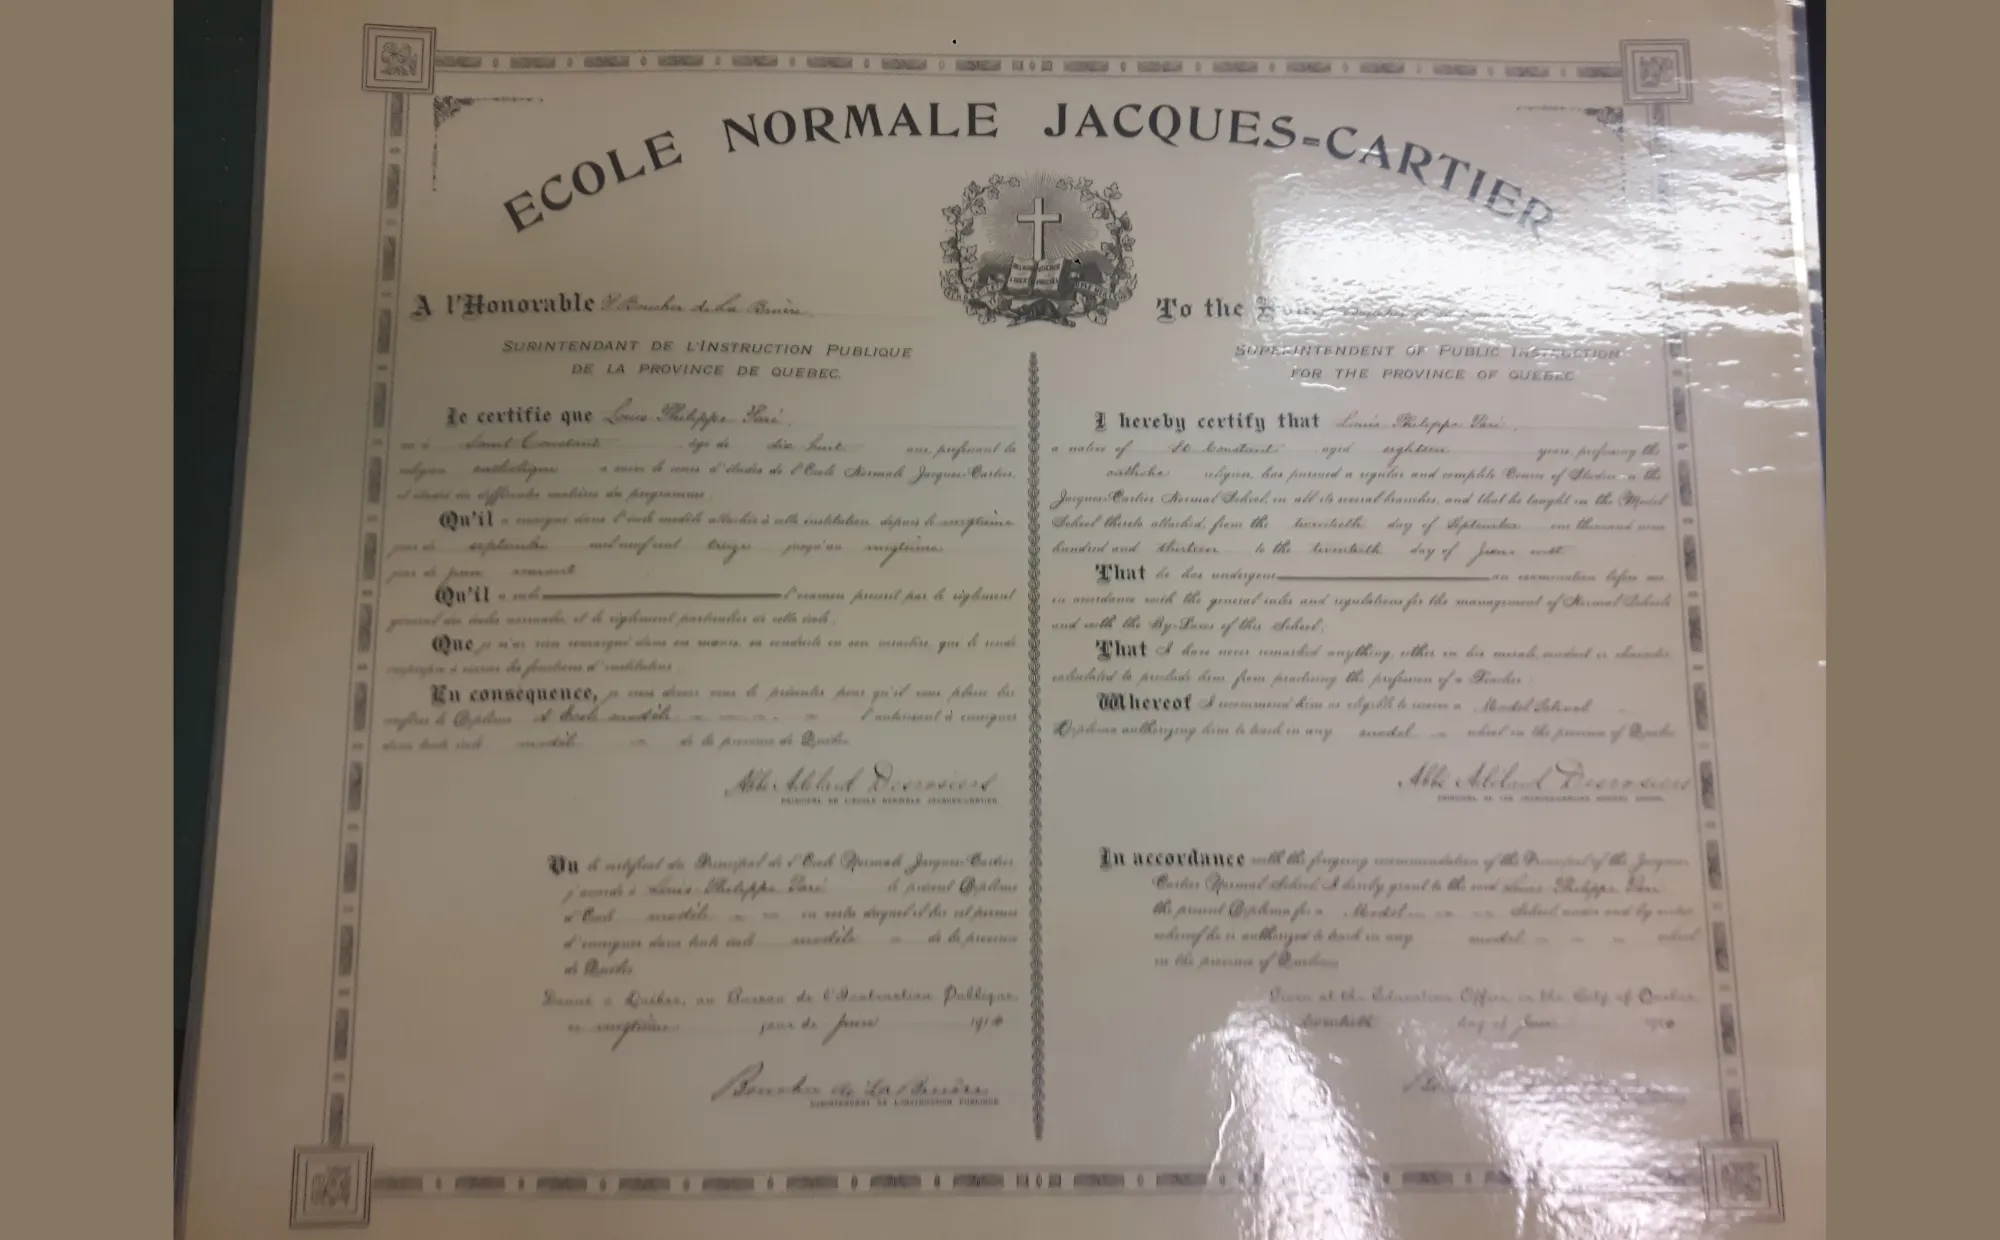 ECOLE NORMALE JACQUES=CARTIER
A l'Honorable P. Boucher de La Bruère
SURINTENDANT DE L'INSTRUCTION PUBLIQUE
DE LA PROVINCE DE QUEBEC.
Je certifie que Louis Philippe Paré
né à Saint Constant âgé de dix huit ans, professant la
religion catholique a suivi le cours d'études de l'Ecole Normale Jacques-Cartier,
et étudié les différentes matières du programme;
Qu'il a enseigné dans l'école modèle attachée à cette institution, depuis le vingtième
jour de septembre mil neuf cent treize jusqu'au vingtième
jour de juin courant
Qu'il a subi l'examen prescrit par le règlement
général des écoles normales, et le règlement particulier de cette école;
Que je n'ai rien remarqué dans ses mœurs, sa conduite ou son caractère, qui le rende
impropre à exercer les fonctions d'instituteur.
En conséquence, je crois devoir vous le présenter pour qu'il vous plaise lui
conférer le Diplôme d'Ecole modèle l'autorisant à enseigner
dans toute école modèle de la province de Québec.
Abbé Adélard Desrosiers
PRINCIPAL DE L'ECOLE NORMALE JACQUES-CARTIER
Vu le certificat du Principal de l'Ecole Normale Jacques-Cartier
j'accorde à Louis-Philippe Paré le présent Diplôme
d'Ecole modèle en vertu duquel il lui est permis
d'enseigner dans toute école modèle de la province
de Québec
Donné à Québec, au Bureau de l'Instruction Publique,
ce vingtième jour de juin 191
Boucher de La Bruère
SURINTENDANT DE L'INSTRUCTION PUBLIQUE
To the Hon. Boucher
SUPERINTENDENT OF PUBLIC INSTRUCTION
FOR THE PROVINCE OF QUEBEC
I hereby certify that Louis Philippe Paré,
a native of St Constant aged eighteen years, professing the
catholic religion, has pursued a regular and complete Course of Studies in the
Jacques-Cartier Normal School, in all its several branches, and that he taught in the Model
School thereto attached, from the twentieth day of September one thousand nine
hundred and thirteen to the twentieth day of June
That he has undergone an examination before me,
in accordance with the general rules and regulations for the management of Normal Schools
and with the By-Laws of this School;
That I have never remarked anything, either in his morals, conduct or character
calculated to preclude him from practising the profession of a Teacher.
Whereof I recommend him as eligible to receive a Model School
Diploma authorizing him to teach in any model school in the province of Quebec
Abbé Adélard Desrosiers
PRINCIPAL OF THE JACQUES-CARTIER NORMAL SCHOOL
In accordance with the foregoing recommendation of the Principal of the Jacques-
Cartier Normal School, I hereby grant to the said Louis-Philippe Paré
the present Diploma for a Model School under and by virtue
whereof he is authorized to teach in any model school
in the province of Quebec
Given at the Education Office, in the City of Quebec
twentieth day of June